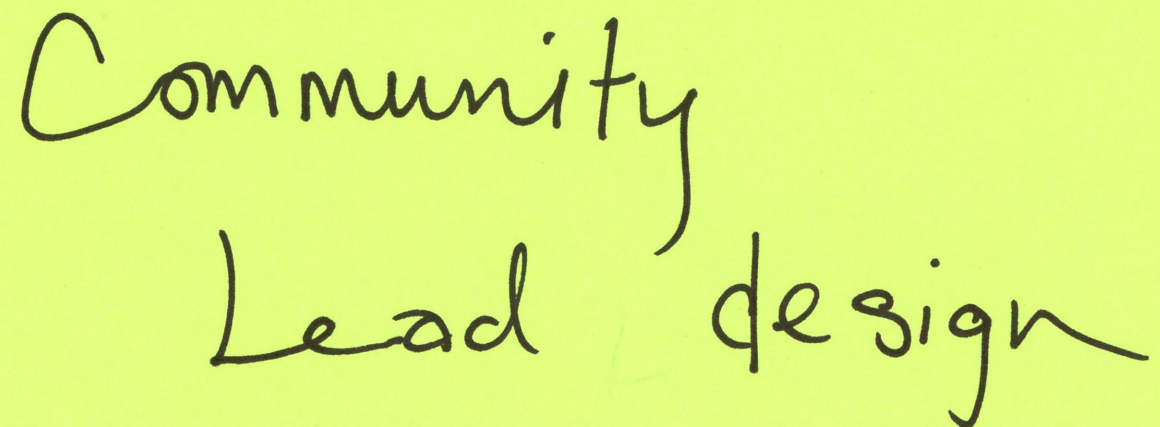 Community
Lead design